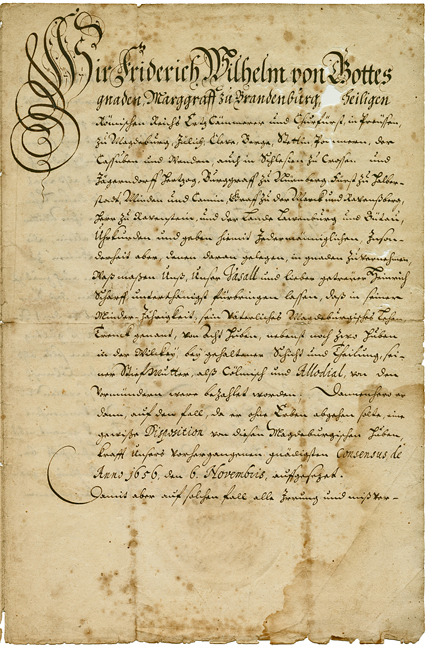 Wir Friderich Wilhelm von Gottes
gnaden, Marggraff zu Brandenburg, Heiligen
Römischen Reichs Ertz Cämmerer und Churfürst, in Preußen,
zu Magdeburg, Jülich, Cleve, Berge, Stettin Pommern, der
Caßuben und Wenden, auch in Schlesien zu Croßen und
Jägerndorff Hertzog, Burggraff zu Nürnberg, Fürst zu Halber-
stadt, Minden und Camin, Graff zu der Marck und Ravensberg,
Herr zu Ravenstein, und der Lande Lauenburg und Bütau,
Uhrkunden und geben hiemit Jedermänniglichen, Inson-
derheit aber, denen daran gelegen, in gnaden zu vernehmen,
Daß Unß, Unser Vasall und lieber getreüer Heinrich
unterthänigst fürbringen laßen, daß in seiner
Minder-Jährigkeit, sein Väterliches Magdeburgisches Lehen
genant, von Acht Huben, nebenst noch zwo Huben
in der bey gehaltener Schicht und Theilung, sei-
ner Stieff Mutter, alß Cölmisch und Allodial, von den
Vormündern were bezahlet worden.
denn, auf den fall, da er ohne Erben abgehen solte, eine
gewiße Disposition von diesen Magdeburgischen Huben,
krafft Unsers vorhergangenen gnädigsten Consensus, de
Anno 1656, den 6. Novembris, aufgesetzet.
Damit aber auf solchen fall alle Irrung und mißver-